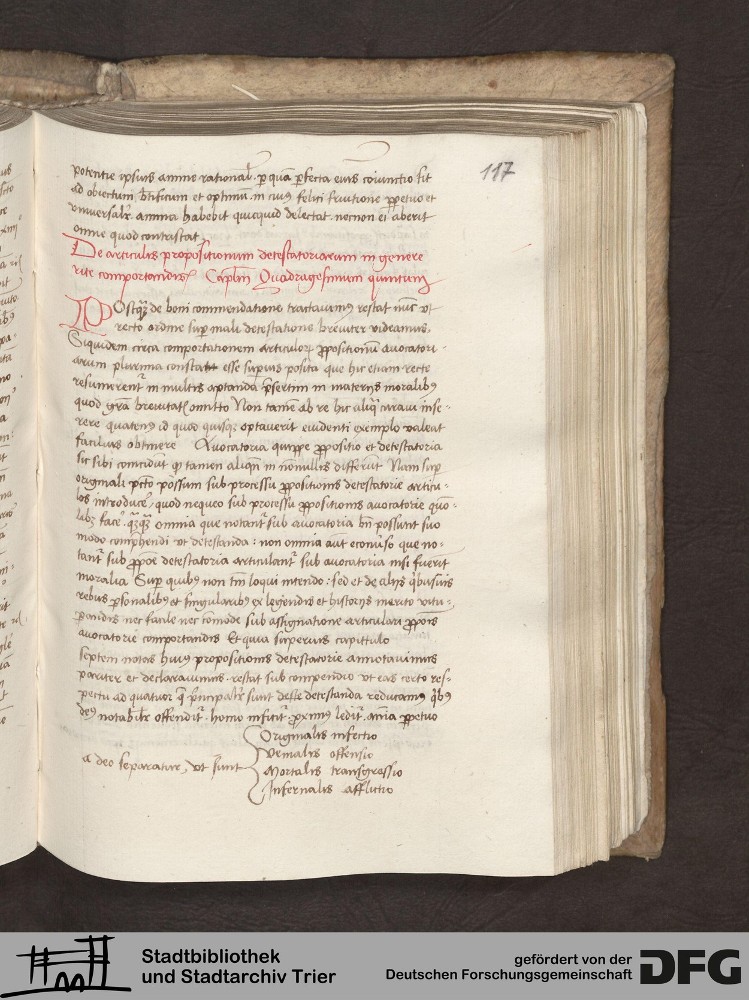 117
potentie ipsius anime rationalis. p quã pfecta eius coiunctio sit
ad obiectum btificum et optimũ. in cuiꝰ felici fruitione ppetuo et
vniuersalr anima habebit quicquid delectat. necnon ei aberit
omne quod contrastat
De articulis propositionum detestatoriarum in genere
rite comportandis Caplm Quadragesimum quintum
POstqꝫ de boni commendatione tractauimꝰ restat nũc vt
recto ordine sup mali detestatione breuiter videamus,
Siquidem circa comportationem articuloꝝ ppositionũ auocatori-
arum plurima constat esse supius posita que hic etiam recte
resumerent in multis aptanda psertim in materijs moralibꝰ
quod grã breuitatis omitto Non tamẽ ab re hic aliq̃ curaui inse-
rere quatenꝰ id quod quisqꝫ optauerit euidenti exemplo valeat
facilius obtinere Auocatoria quippe ppositio et detestatoria
sic sibi coincidũt ꝙ tamen aliqñ in nonnullis differũt Nam sup
originali pctõ possum sub processu ppositionis detestatorie articu-
los introduce, quod nequeo sub processu ppositionis auocatorie quo-
libꝫ face. qꝫqꝫ omnia que notant sub auocatoria bñ possunt suo
modo comphendi vt detestanda: non omnia aut econuso que no-
tant sub ppõe detestatoria articulant sub auocatoria nisi fuerit
moralia Sup quibꝰ non tm loqui intendo: sed et de alijs qbusuis
rebus psonalibꝰ et singularibꝰ ex legendis et historijs merito vitu-
pandis nec facile nec cõmode sub assignatione articulari ppõis
auocatorie comportandis Et quia superius capittulo
septem notas huiꝰ propositionis detestatorie annotauimus
pariter et declarauimus. restat sub compendio vt eas certo res-
pectu ad quatuor q̃ pncipalr sunt detestanda reducamꝰ qbꝰ
deꝰ notabilr offendit. homo inficit pximꝰ ledit. aĩa ppetuo
a deo separatur, vt sunt
Originalis infectio
Venialis offensio
Mortalis transgressio
Infernalis afflictio
Stadtbibliothek
und Stadtarchiv Trier
gefördert von der
Deutschen Forschungsgemeinschaft
DFG